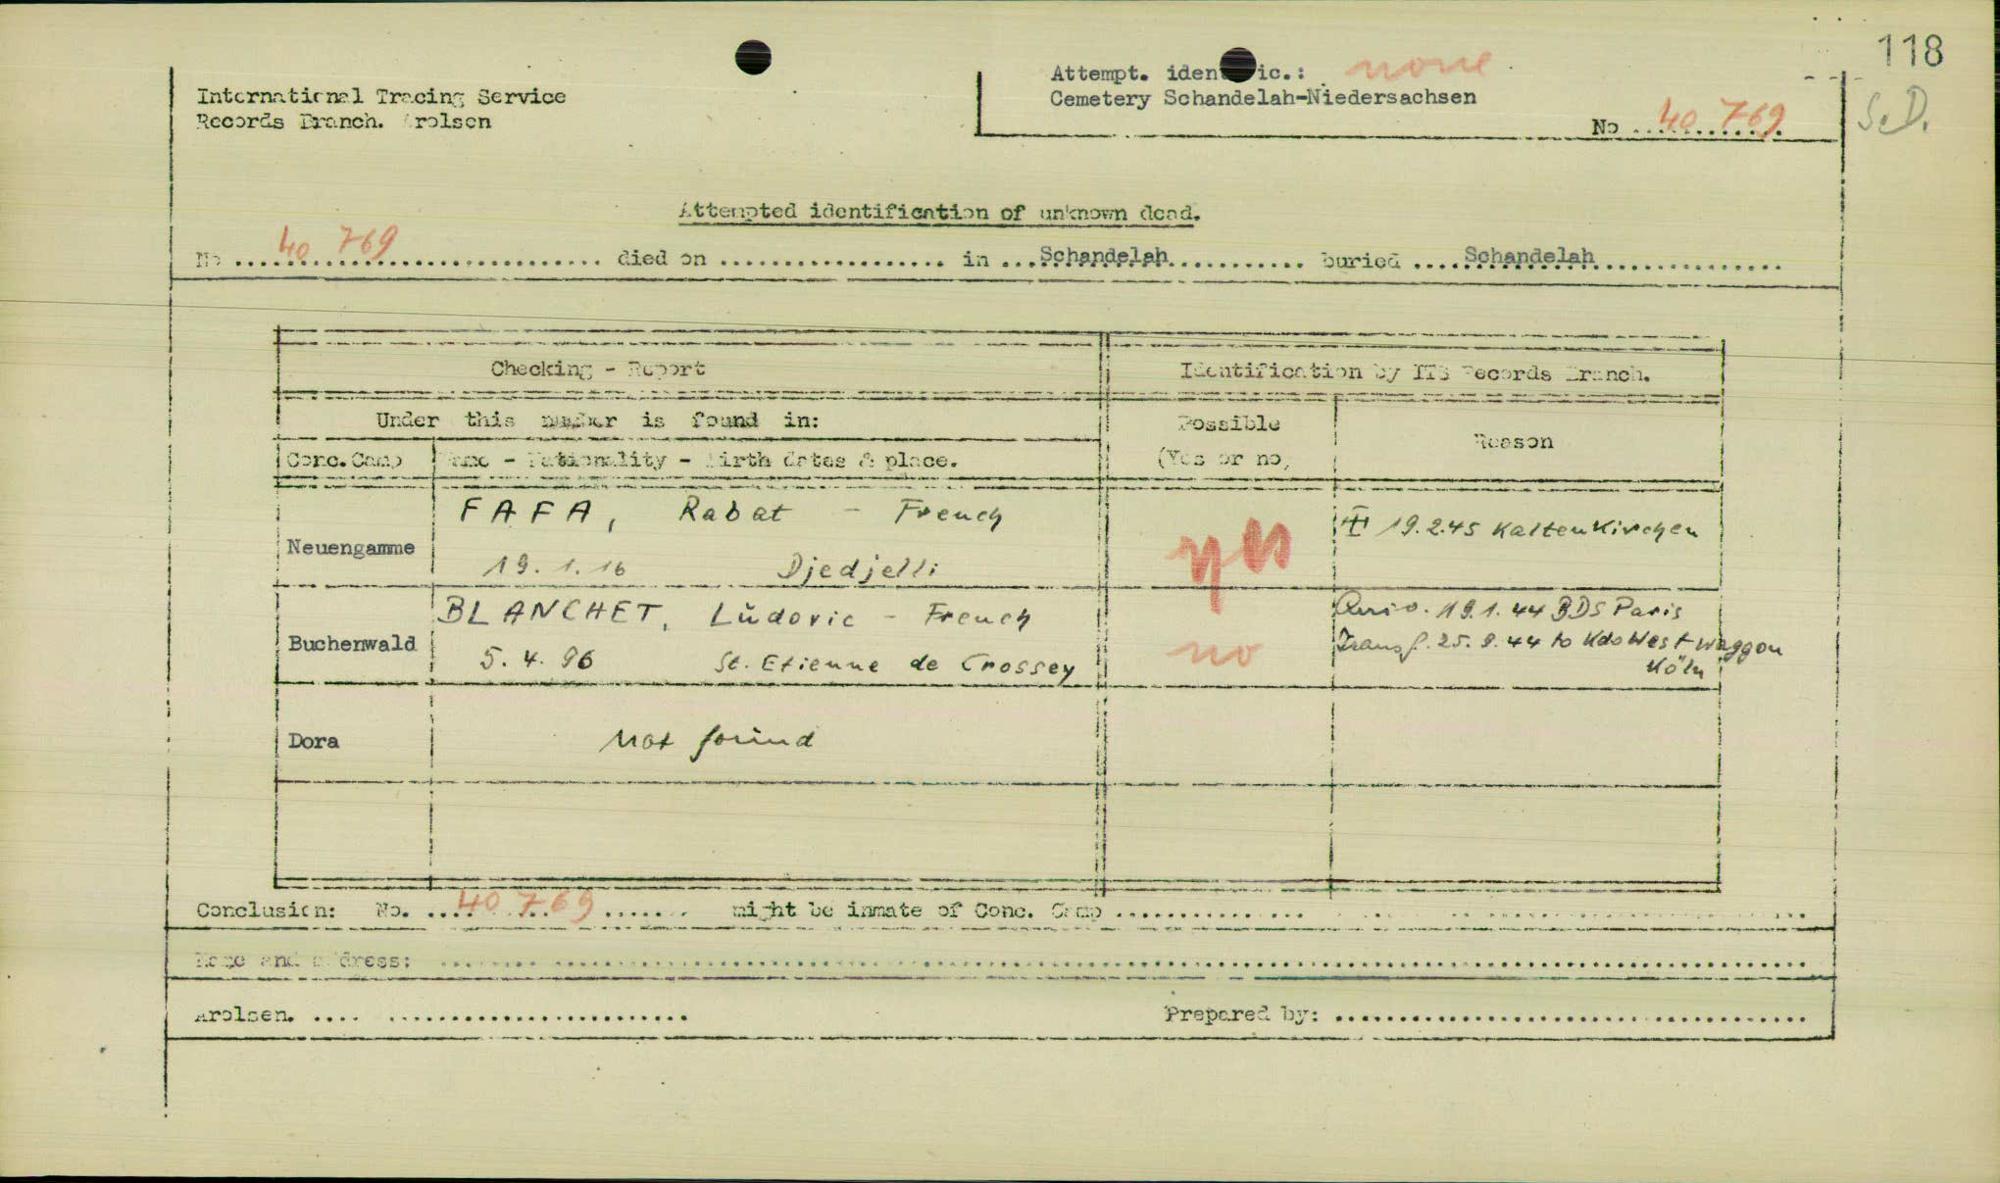 118
International Tracing Service
Records Branch. Arolsen
Attempt. identific.: none
Cemetery Schandelah-Niedersachsen
No ...40 769...
S.D.
Attempted identification of unknown dead.
No ...40 769... died on ... in ...Schandelah... buried ...Schandelah...
Checking - Report
Identification by ITS Records Branch.
Under this number is found in:
Possible
(Yes or no)
Reason
Conc.Camp
Name - Nationality - Birth dates & place.
Neuengamme
FAFA, Rabat - French
19.1.16 Djedjelli
yes
19.2.45 Kaltenkirchen
Buchenwald
BLANCHET, Ludovic - French
5.4.96 St. Etienne de Crossey
no
19.1.44 BDS Paris
Transf. 25.9.44 to Kdo Westwaggon
Köln
Dora
not found
Conclusion: No. ....40 769....... might be inmate of Conc. Camp ...............
Name and address: ...............
Arolsen. .... .......................
Prepared by: ...............